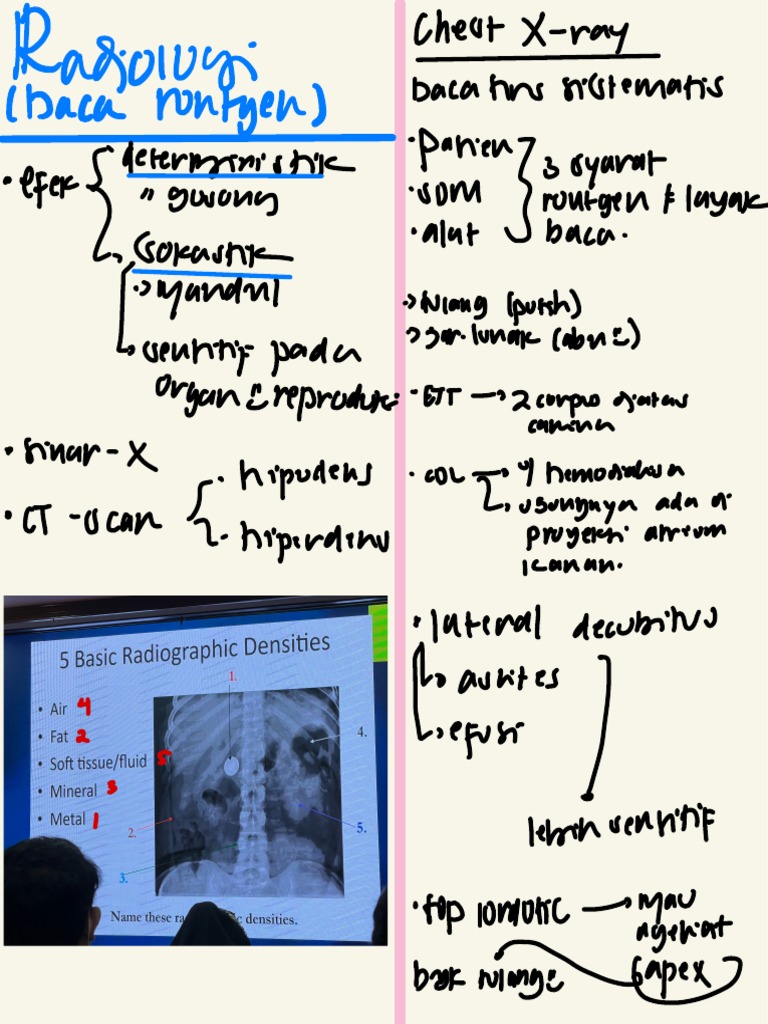 Radiologi
(baca rontgen)
• efek
deterministik
" gosong
• Sokastik
↳ mandul
↳ sensitif pada
organ² reproduksi
• sinar-X
• CT-scan
• hipodens
• hiperdens
5 Basic Radiographic Densities
• Air 4
• Fat 2
• Soft tissue/fluid 5
• Mineral 3
• Metal 1
1.
2.
3.
4.
5.
Name these densities.
Chest X-ray
baca hrs sistematis
• pasien
• SDM
• alat
3 syarat
rontgen layak
baca.
→ tulang (putih)
→ Jar. lunak (abu²)
• ETT → 2 corpo diatas
carina
• CDL → u/ hemodialisa
↳ ujungnya ada di
proyeksi atrium
kanan.
• lateral decubitus
↳ asites
↳ efusi
lebih sensitif
• top lordotic → mau
ngelihat
apex
byk tulang²